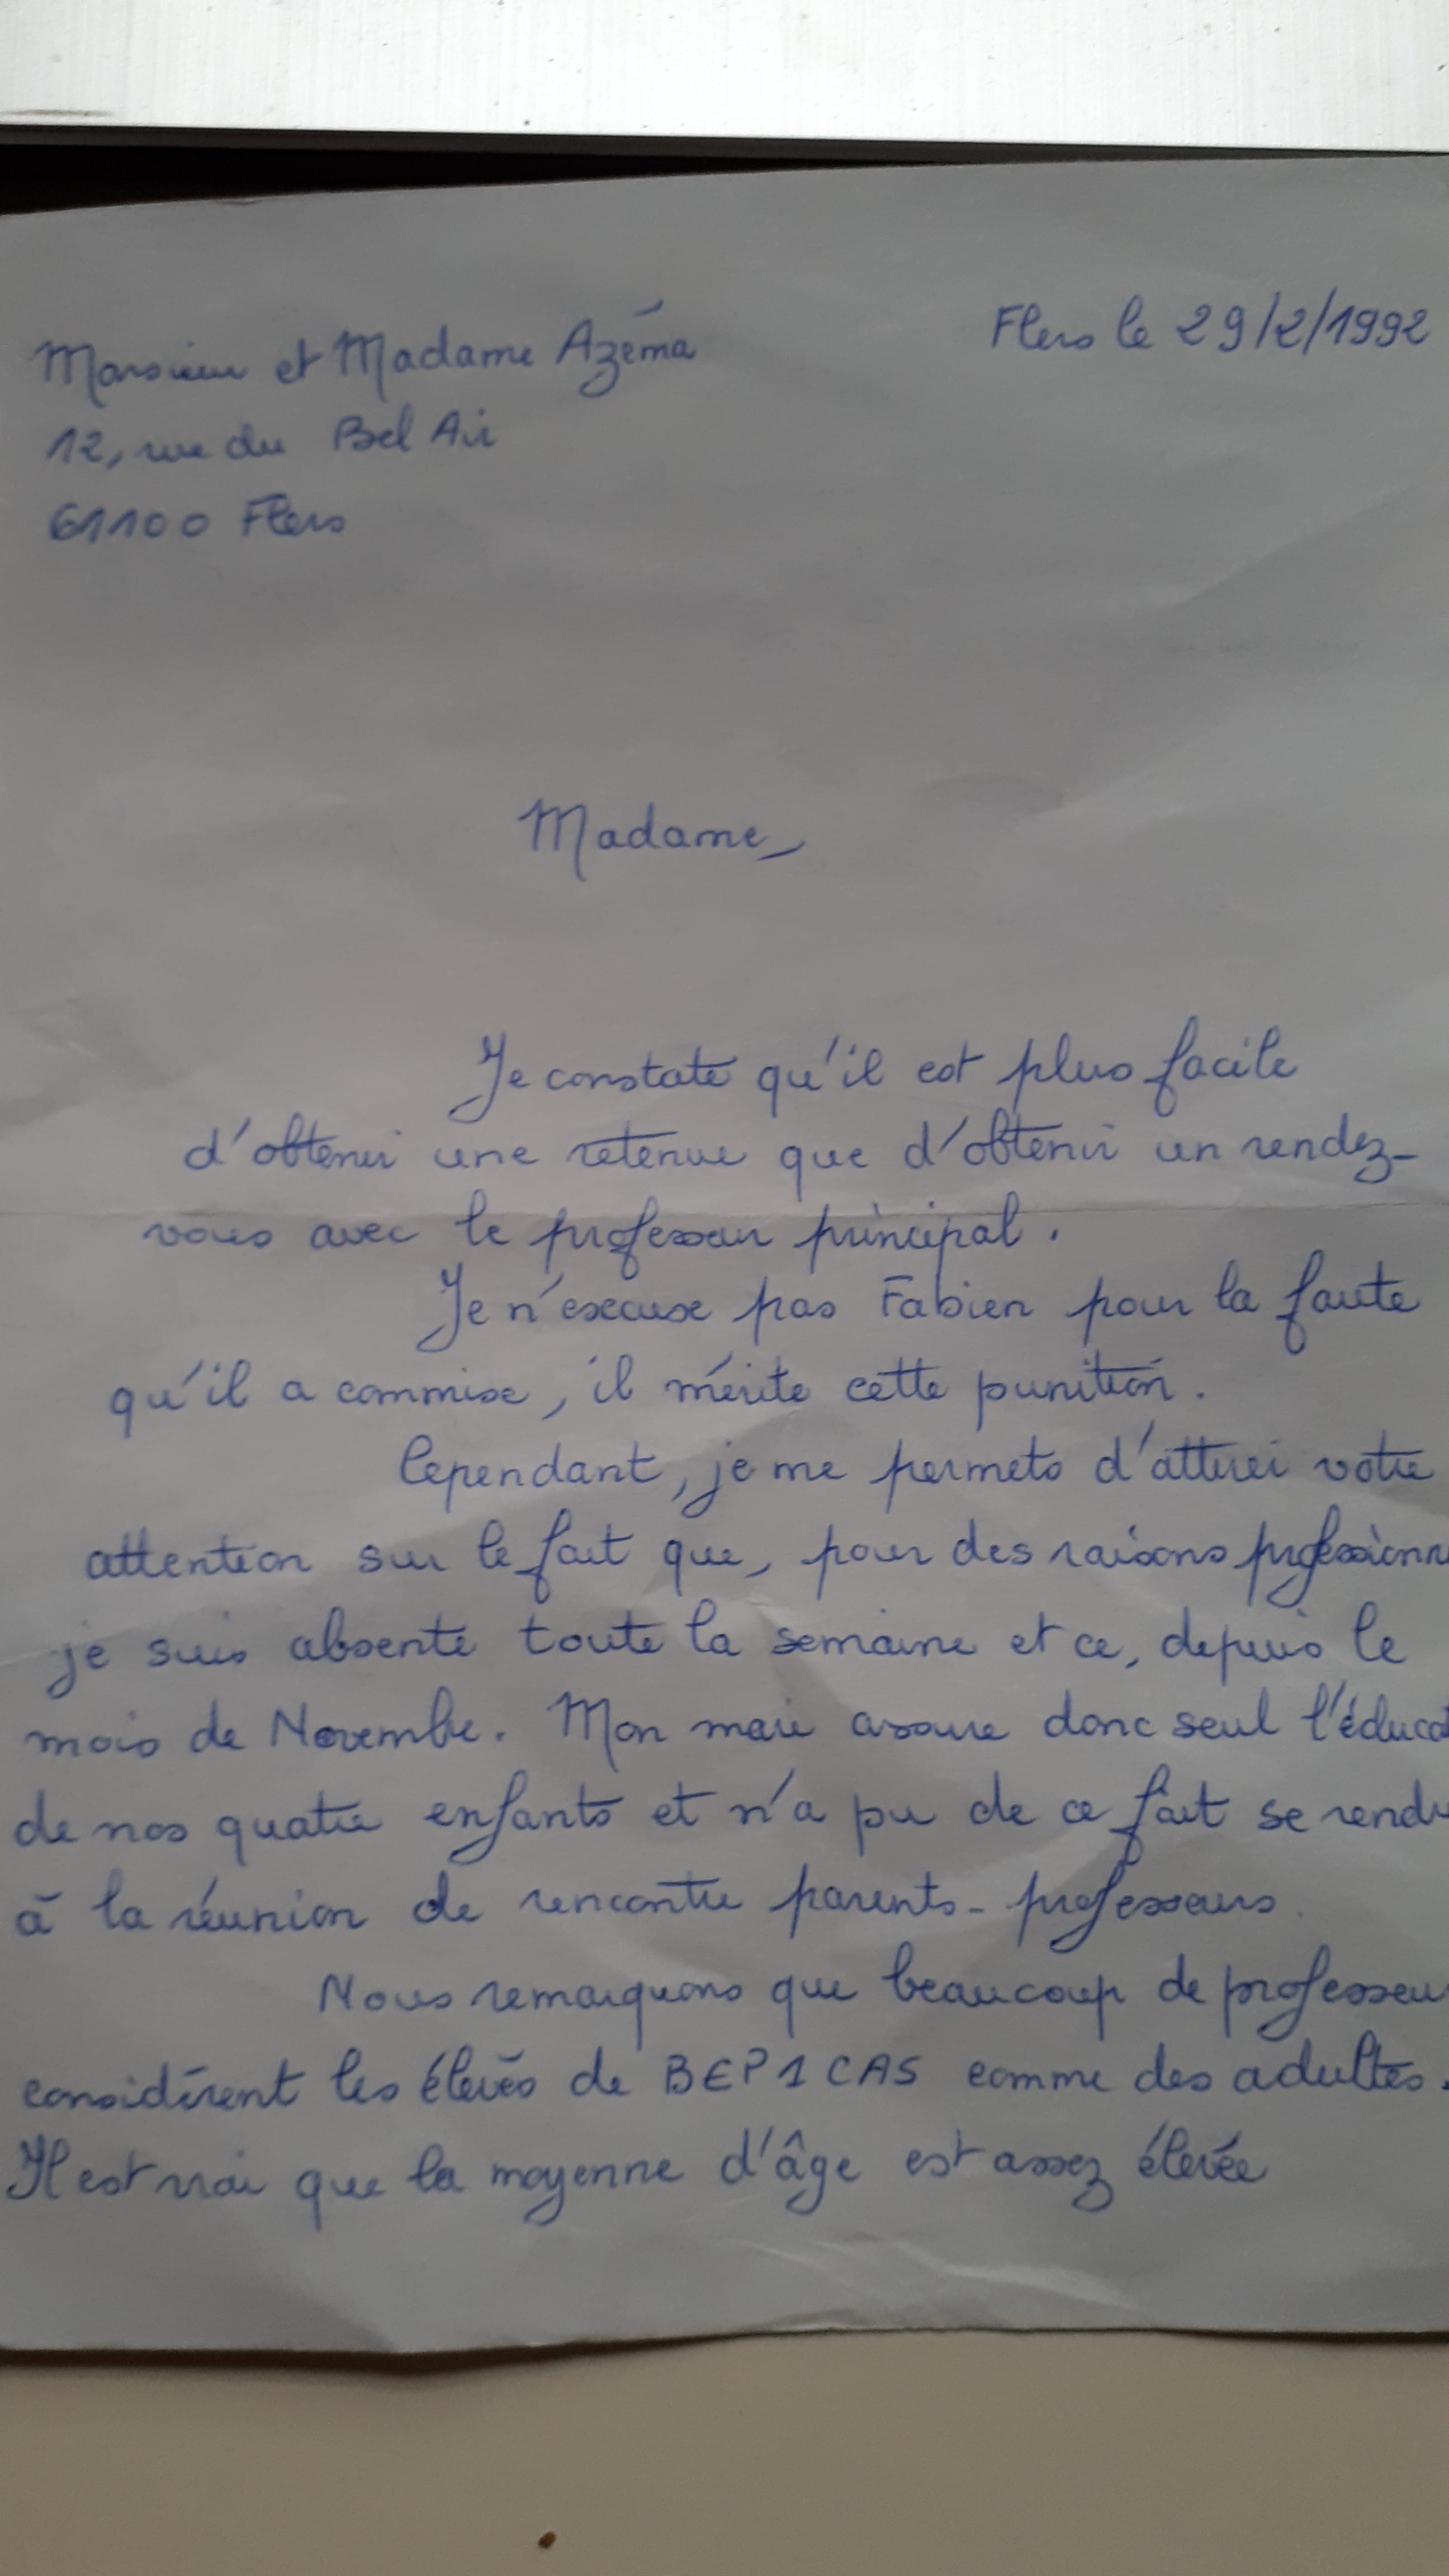 Flers le 29/2/1992
Monsieur et Madame Azéma
12, rue du Bel Air
61100 Flers
Madame,
Je constate qu'il est plus facile
d'obtenir une retenue que d'obtenir un rendez-
vous avec le professeur principal.
Je n'excuse pas Fabien pour la faute
qu'il a commise, il mérite cette punition.
Cependant, je me permets d'attirer votre
attention sur le fait que, pour des raisons professionn
je suis absente toute la semaine et ce, depuis le
mois de Novembre. Mon mari assure donc seul l'éducat
de nos quatre enfants et n'a pu de ce fait se rendr
à la réunion de rencontre parents-professeurs.
Nous remarquons que beaucoup de professeu
considèrent les élèves de BEP1CAS comme des adultes.
Il est vrai que la moyenne d'âge est assez élevée